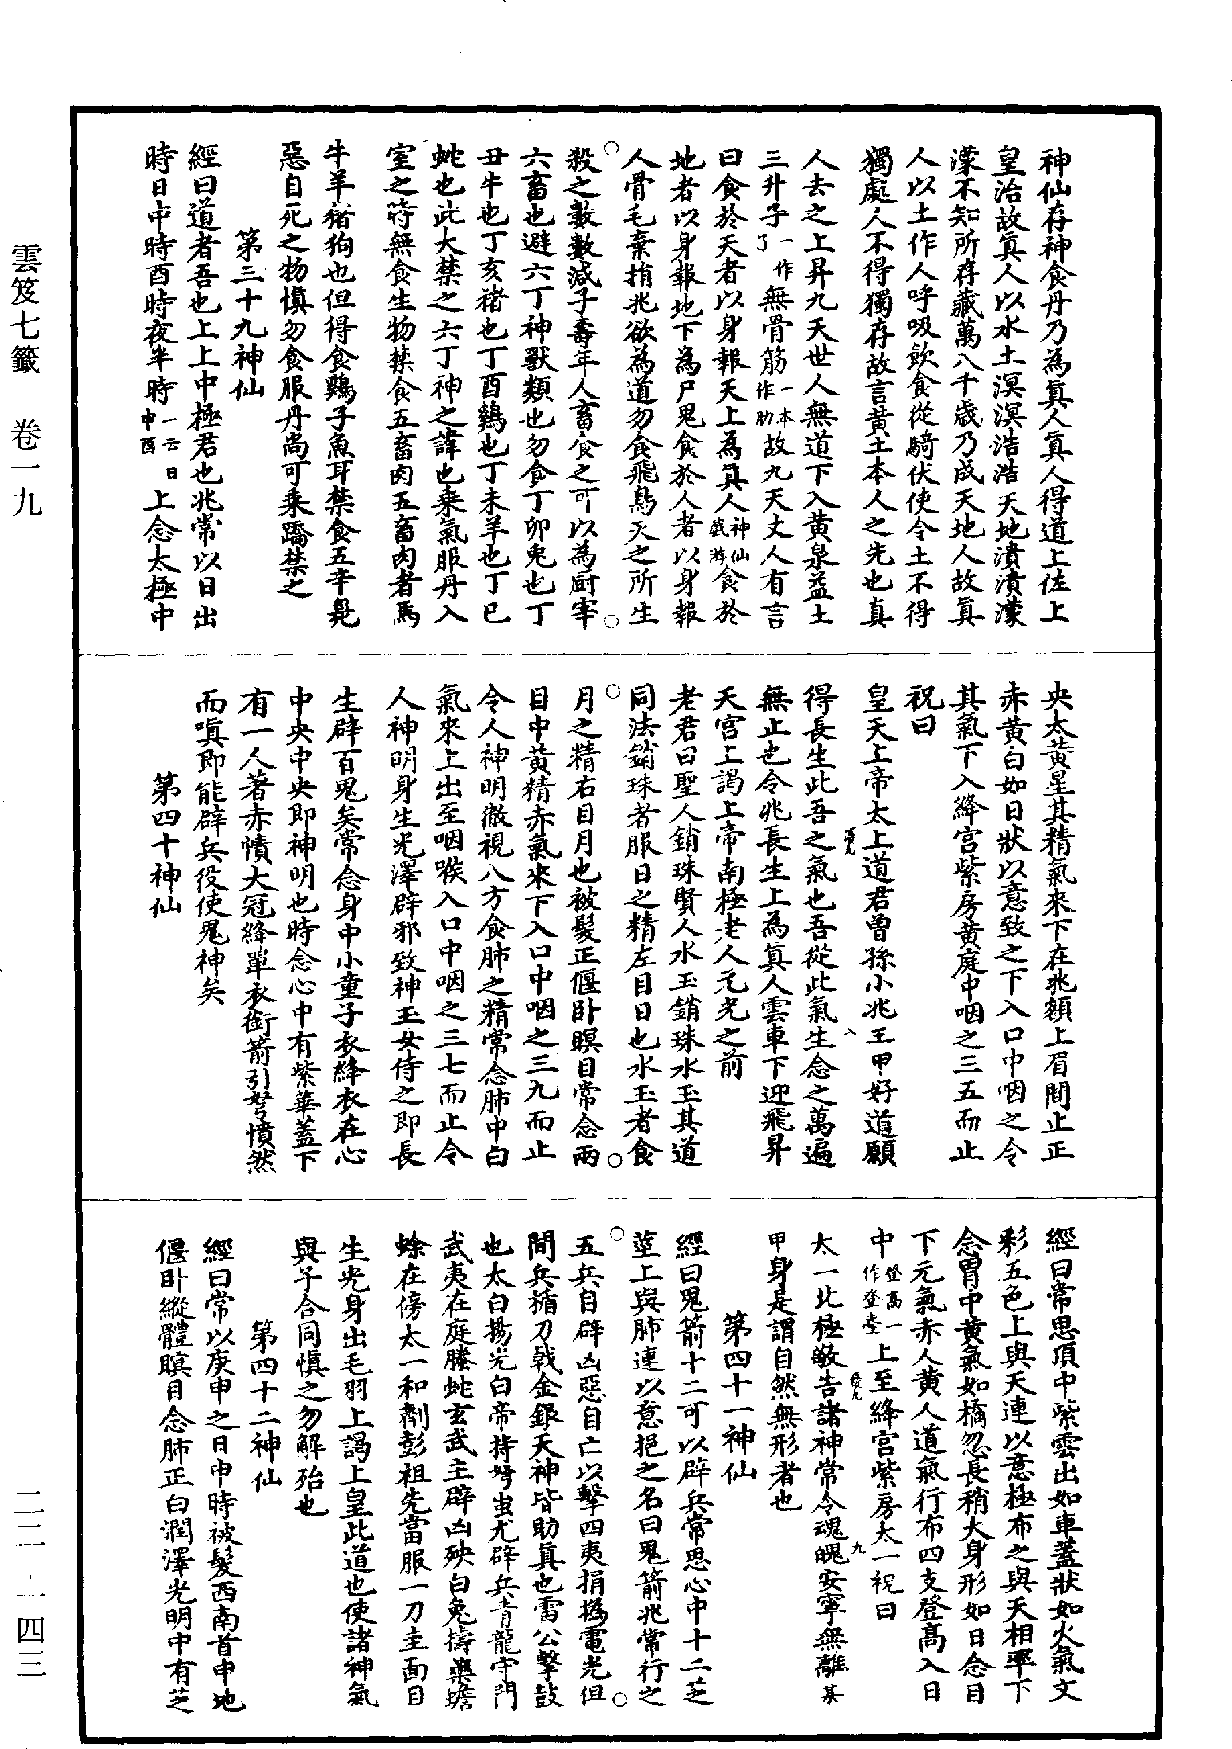 神仙存神食丹乃為真人真人得道上佐上
皇治故真人以水土溟溟浩浩天地濆濆濛
濛不知所存藏萬八千歲乃成天地人故真
人以土作人呼吸飲食從騎伏使令土不得
獨處人不得獨存故言黃土本人之先也真
人去之上昇九天世人無道下入黃泉益土
三升子一作了無骨筋一本作肋故九天丈人有言
曰食於天者以身報天上為真人神仙或游食於
地者以身報地下為尸鬼食於人者以身報
人骨毛棄捐兆欲為道勿食飛鳥天之所生
殺之數數減子壽年人畜食之可以為廚宰
六畜也避六丁神獸類也勿食丁卯兔也丁
丑牛也丁亥猪也丁酉鷄也丁未羊也丁巳
蛇也此大禁之六丁神之諱也乘氣服丹入
室之時無食生物禁食五畜肉五畜肉者馬
牛羊猪狗也但得食鷄子魚耳禁食五辛臭
惡自死之物慎勿食服丹尚可乘蹻禁之
第三十九神仙
經曰道者吾也上上中極君也兆常以日出
時日中時酉時夜半時一云日申酉上念太極中
央太黃星其精氣來下在兆額上眉間止正
赤黃白如日狀以意致之下入口中咽之令
其氣下入絳宮紫房黃庭中咽之三五而止
祝曰
皇天上帝太上道君曾孫小兆王甲好道願
得長生此吾之氣也吾從此氣生念之萬遍
無止也令兆長生上為真人雲車下迎飛昇
天宮上謁上帝南極老人元光之前
老君曰聖人銷珠賢人水玉銷珠水玉其道
同法銷珠者服日之精左目日也水玉者食
月之精右目月也被髮正偃卧瞑目常念兩
目中黃精赤氣來下入口中咽之三九而止
令人神明徹視八方食肺之精常念肺中白
氣來上出至咽喉入口中咽之三七而止令
人神明身生光澤辟邪致神玉女侍之即長
生辟百鬼矣常念身中小童子衣絳衣在心
中央中央即神明也時念心中有紫華蓋下
有一人著赤幘大冠絳單衣銜箭引弩憤然
而嗔即能辟兵役使鬼神矣
第四十神仙
經曰常思頂中紫雲出如車蓋狀如火氣文
彩五色上與天連以意極布之與天相率下
念胃中黃氣如橘忽長稍大身形如日念目
下元氣赤人黃人道氣行布四支登高入日
中登高一作登臺上至絳宮紫房太一祝曰
太一北極敬告諸神常令魂魄安寧無離某
甲身是謂自然無形者也
第四十一神仙
經曰鬼箭十二可以辟兵常思心中十二芝
莖上與肺連以意挹之名曰鬼箭兆常行之
五兵自辟凶惡自亡以擊四夷捐撝電光但
聞兵楯刀戟金銀天神皆助真也雷公擊鼓
也太白揚光白帝持弩蚩尤辟兵青龍守門
武夷在庭螣蛇玄武主辟凶殃白兔擣藥蟾
蜍在傍太一和劑彭祖先當服一刀圭面目
生光身出毛羽上謁上皇此道也使諸神氣
與子合同慎之勿解殆也
第四十二神仙
經曰常以庚申之日申時被髮西南首申地
偃卧縱體瞑目念肺正白潤澤光明中有芝
雲笈七籤　卷一九
二二－一四三